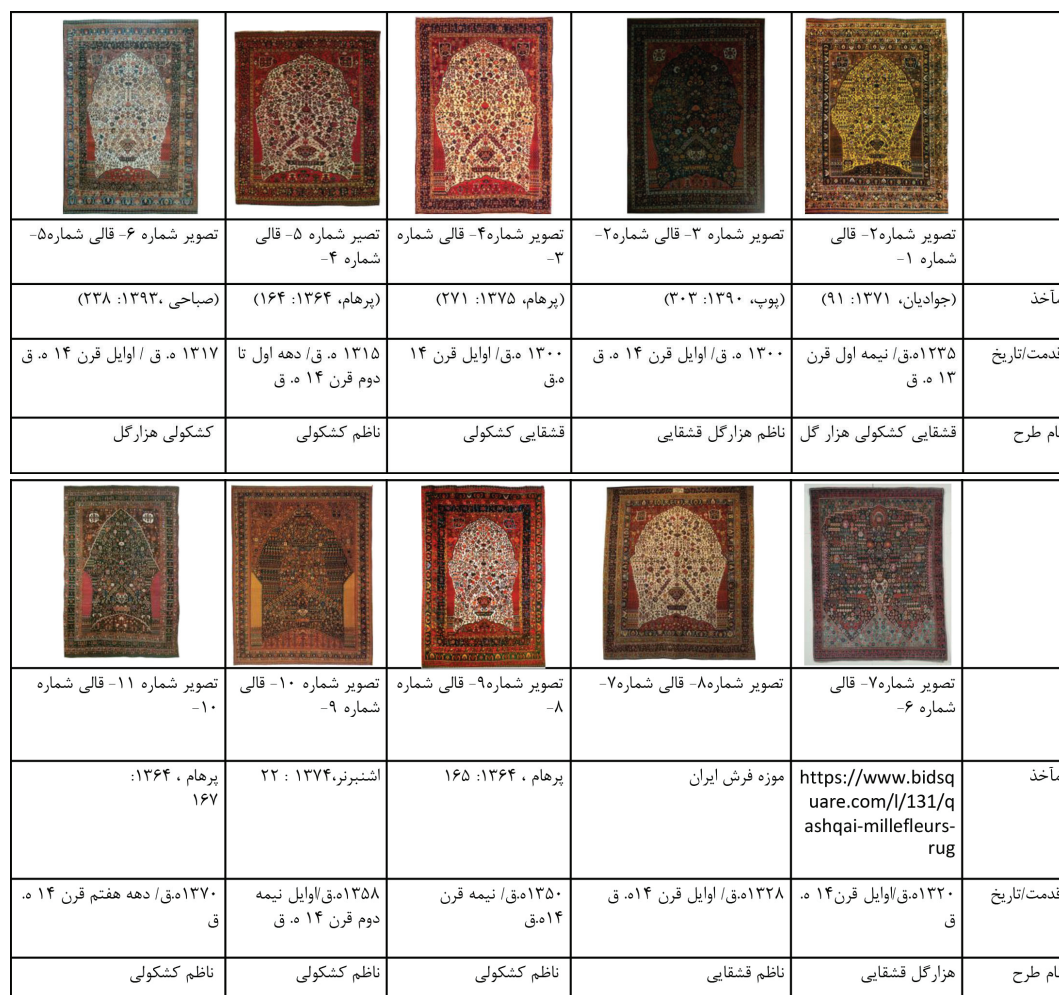 تصویر شماره۲- قالی
شماره ۱-
تصویر شماره ۳- قالی شماره۲-
تصویر شماره۴- قالی شماره
۳-
تصیر شماره ۵- قالی
شماره ۴-
تصویر شماره ۶- قالی شماره۵-
مآخذ
(جوادیان، ۱۳۷۱: ۹۱)
(پوپ، ۱۳۹۰: ۳۰۳)
(پرهام، ۱۳۷۵: ۲۷۱)
(پرهام، ۱۳۶۴: ۱۶۴)
(صباحی ،۱۳۹۳: ۲۳۸)
قدمت/تاریخ
۱۲۳۵ه.ق/ نیمه اول قرن
۱۳ ه. ق
۱۳۰۰ ه. ق/ اوایل قرن ۱۴ ه. ق
۱۳۰۰ ه.ق/ اوایل قرن ۱۴
ه.ق
۱۳۱۵ ه. ق/ دهه اول تا
دوم قرن ۱۴ ه. ق
۱۳۱۷ ه. ق / اوایل قرن ۱۴ ه. ق
نام طرح
قشقایی کشکولی هزار گل
ناظم هزارگل قشقایی
قشقایی کشکولی
ناظم کشکولی
کشکولی هزارگل
تصویر شماره۷- قالی
شماره ۶-
تصویر شماره۸- قالی شماره۷-
تصویر شماره۹- قالی شماره
۸-
تصویر شماره ۱۰- قالی
شماره ۹-
تصویر شماره ۱۱- قالی شماره
۱۰-
مآخذ
https://www.bidsq
uare.com/l/131/q
ashqai-millefleurs-
rug
موزه فرش ایران
پرهام ، ۱۳۶۴: ۱۶۵
اشنبرنر،۱۳۷۴ : ۲۲
پرهام ، ۱۳۶۴:
۱۶۷
قدمت/تاریخ
۱۳۲۰ه.ق/اوایل قرن۱۴ ه.
ق
۱۳۲۸ه.ق/ اوایل قرن ۱۴ه. ق
۱۳۵۰ه.ق/ نیمه قرن
۱۴ه.ق
۱۳۵۸ه.ق/اوایل نیمه
دوم قرن ۱۴ ه. ق
۱۳۷۰ه.ق/ دهه هفتم قرن ۱۴ ه.
ق
نام طرح
هزارگل قشقایی
ناظم قشقایی
ناظم کشکولی
ناظم کشکولی
ناظم کشکولی